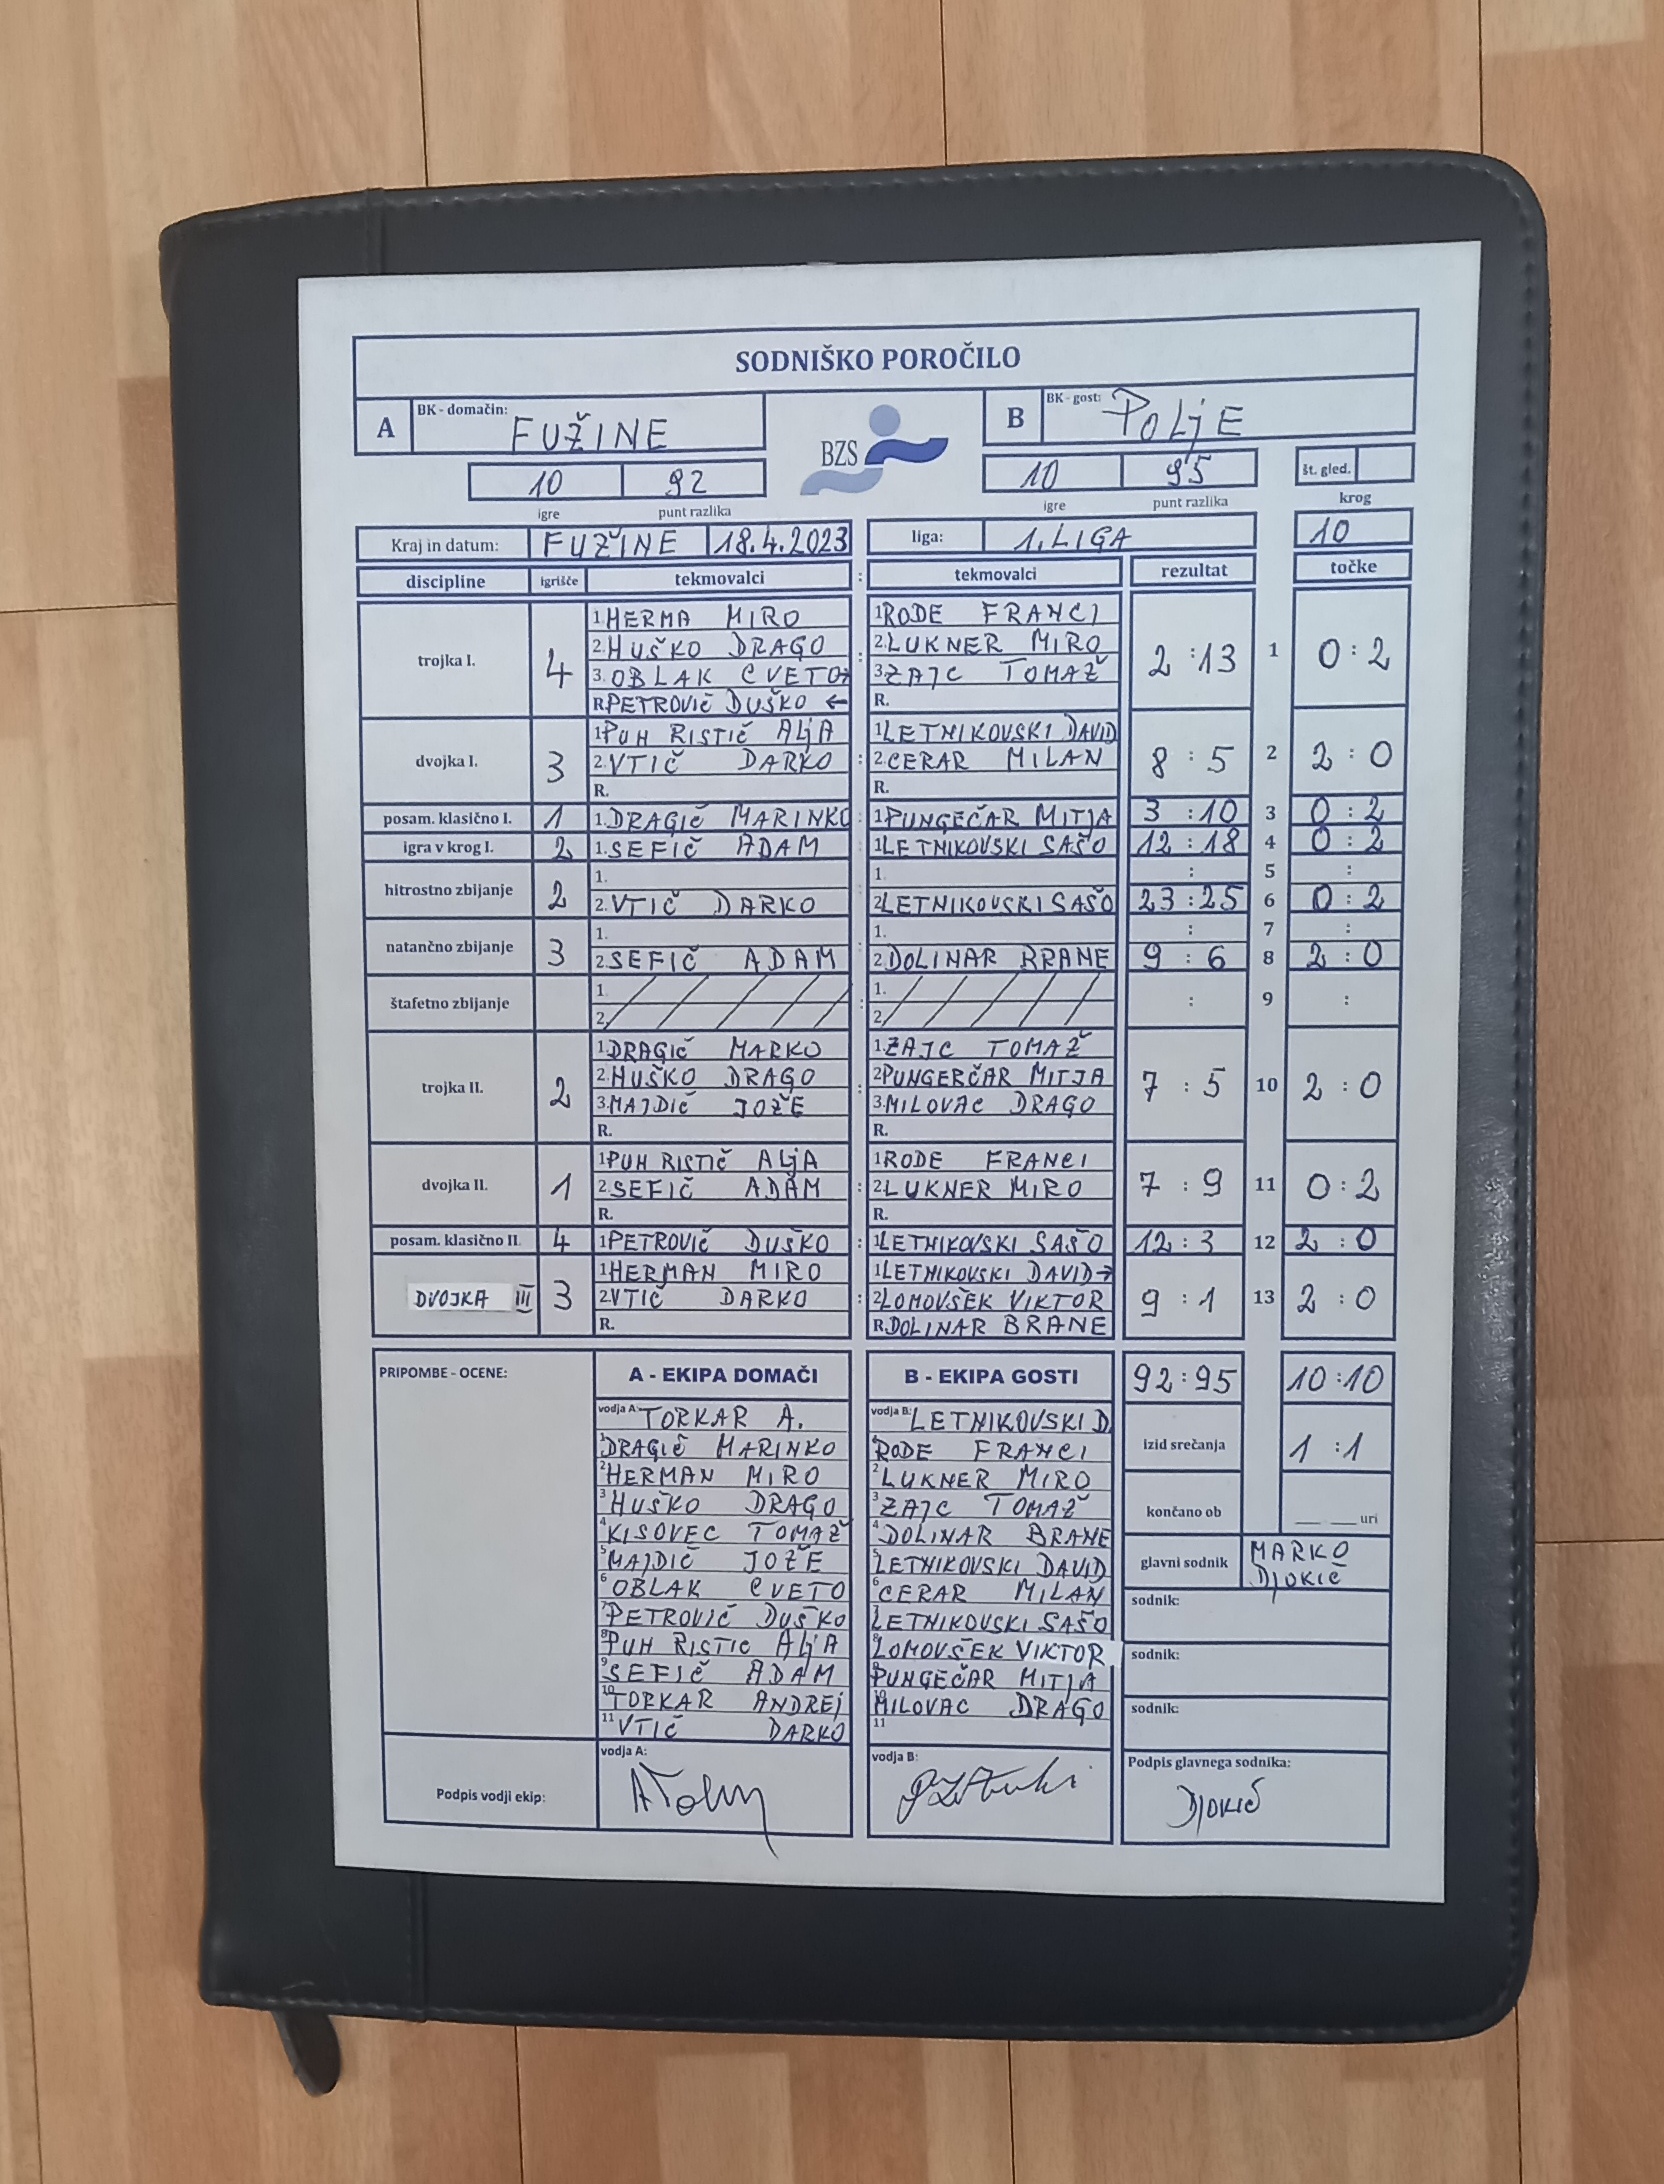 SODNIŠKO POROČILO
A BK - domačin: FUŽINE BZS B BK - gost: POLjE
10 92 10 95 št. gled.
igre punt razlika igre punt razlika krog
Kraj in datum: FUŽINE 18.4.2023 liga: 1. LIGA 10
discipline igrišče tekmovalci : tekmovalci rezultat točke
trojka I. 4 1. HERMA MIRO : 1. RODE FRANCI 2 : 13 1 0 : 2
2. HUŠKO DRAGO 2. LUKNER MIRO
3. OBLAK CVETO→ 3. ZAJC TOMAŽ
R. PETROVIČ DUŠKO ← R.
dvojka I. 3 1. PUH RISTIČ ALjA : 1. LETNIKOVSKI DAVID 8 : 5 2 2 : 0
2. VTIČ DARKO 2. CERAR MILAN
R. R.
posam. klasično I. 1 1. DRAGIČ MARINKO : 1. PUNGEČAR MITJA 3 : 10 3 0 : 2
igra v krog I. 2 1. SEFIČ ADAM : 1. LETNIKOVSKI SAŠO 12 : 18 4 0 : 2
hitrostno zbijanje 2 1. 1. : 5 :
2. VTIČ DARKO 2. LETNIKOVSKI SAŠO 23 : 25 6 0 : 2
natančno zbijanje 3 1. : 1. : 7 :
2. SEFIČ ADAM 2. DOLINAR BRANE 9 : 6 8 2 : 0
štafetno zbijanje 1. : 1. : 9 :
2. 2.
trojka II. 2 1. DRAGIČ MARKO : 1. ZAJC TOMAŽ 7 : 5 10 2 : 0
2. HUŠKO DRAGO 2. PUNGERČAR MITJA
3. MAJDIČ JOŽE 3. MILOVAC DRAGO
R. R.
dvojka II. 1 1. PUH RISTIČ ALjA : 1. RODE FRANCI 7 : 9 11 0 : 2
2. SEFIČ ADAM 2. LUKNER MIRO
R. R.
posam. klasično II. 4 1. PETROVIČ DUŠKO : 1. LETNIKOVSKI SAŠO 12 : 3 12 2 : 0
DVOJKA III 3 1. HERMAN MIRO : 1. LETNIKOVSKI DAVID→ 9 : 1 13 2 : 0
2. VTIČ DARKO 2. LOMOVŠEK VIKTOR
R. R. DOLINAR BRANE
PRIPOMBE - OCENE: A - EKIPA DOMAČI B - EKIPA GOSTI 92 : 95 10 : 10
vodja A: TORKAR A. vodja B: LETNIKOVSKI D.
1 DRAGIČ MARINKO 1 RODE FRANCI izid srečanja 1 : 1
2 HERMAN MIRO 2 LUKNER MIRO
3 HUŠKO DRAGO 3 ZAJC TOMAŽ končano ob __ __ uri
4 KISOVEC TOMAŽ 4 DOLINAR BRANE
5 MAJDIČ JOŽE 5 LETNIKOVSKI DAVID glavni sodnik MARKO DJOKIČ
6 OBLAK CVETO 6 CERAR MILAN sodnik:
7 PETROVIČ DUŠKO 7 LETNIKOVSKI SAŠO
8 PUH RISTIC ALjA 8 LOMOVŠEK VIKTOR sodnik:
9 SEFIČ ADAM 9 PUNGEČAR MITJA
10 TORKAR ANDREj 10 MILOVAC DRAGO sodnik:
11 VTIČ DARKO 11
Podpis vodji ekip: vodja A: vodja B: Podpis glavnega sodnika:
Djokič